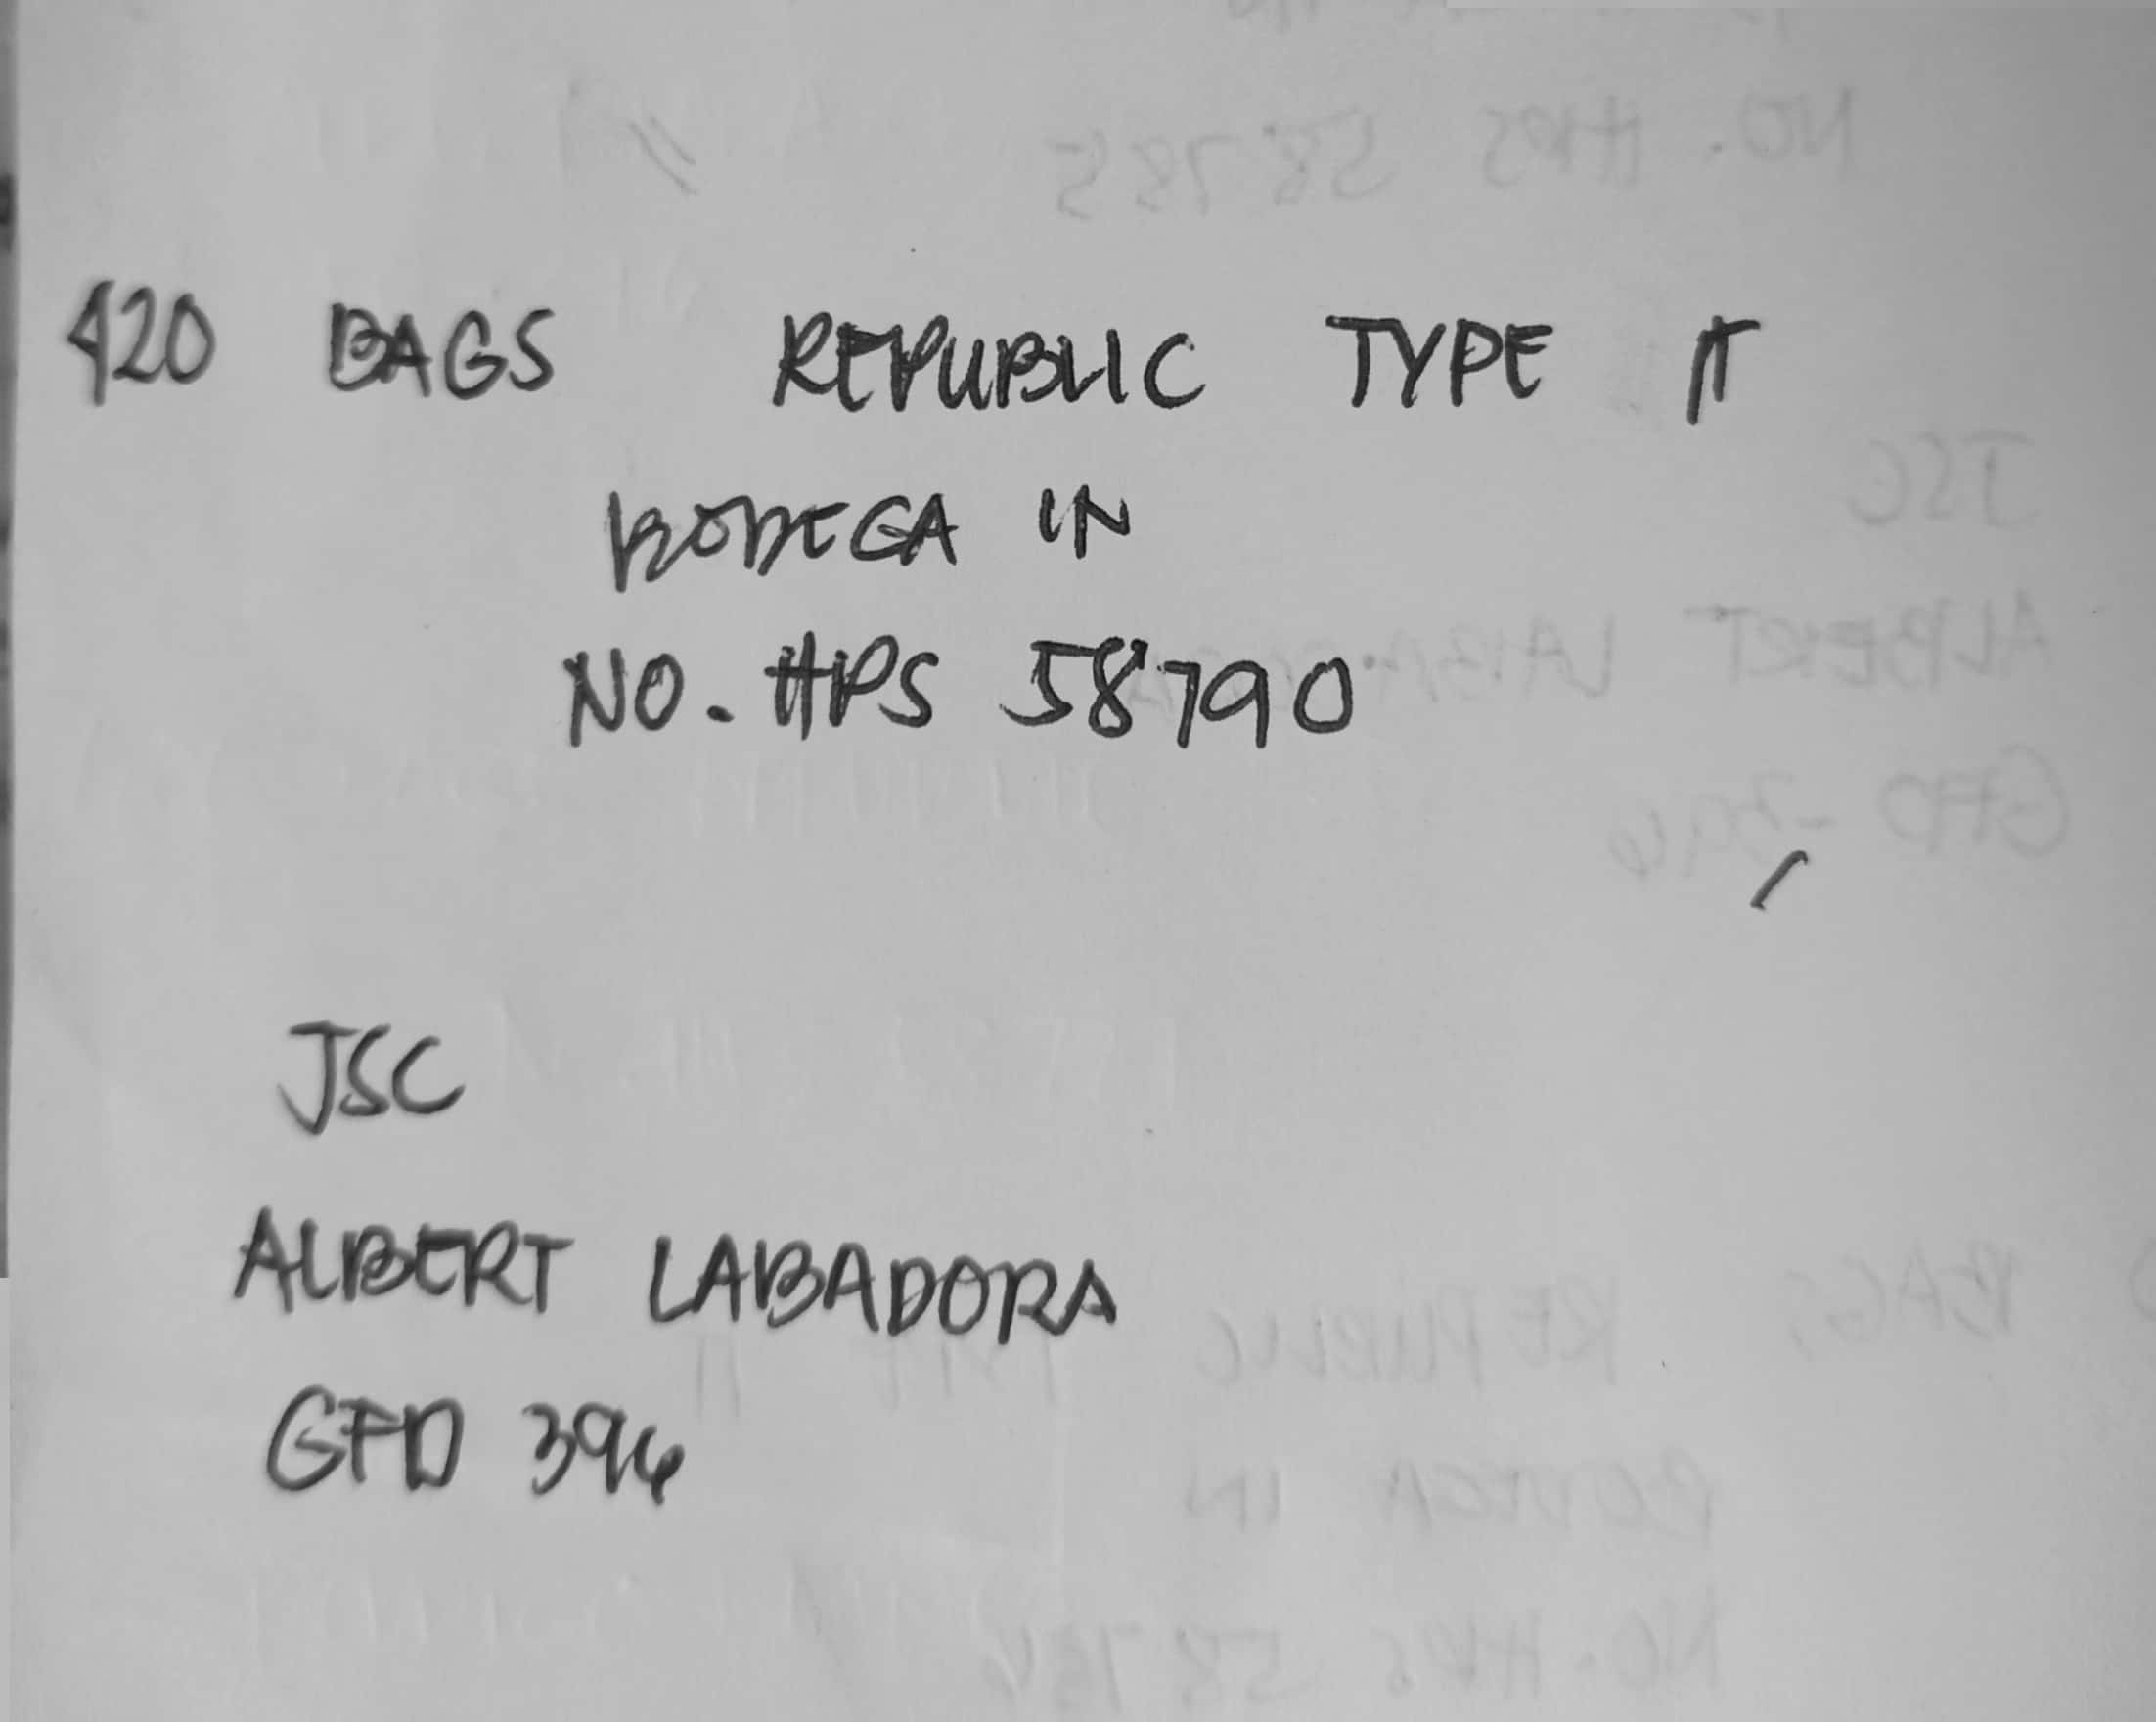 420 BAGS REPUBLIC TYPE 1T
BODEGA IN
NO. HPS 58790
JSC
ALBERT LABADORA
GFD 396